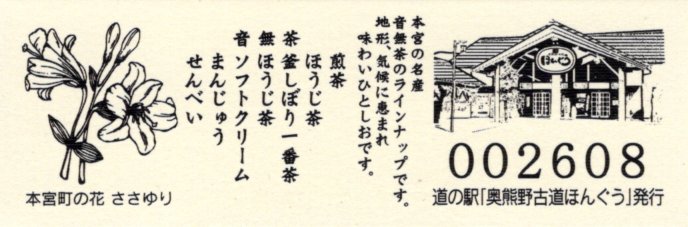 ほんぐう
本宮の名産
音無茶のラインナップです。
地形、気候に恵まれ
味わいひとしおです。
音無茶
煎茶
ほうじ茶
釜しぼり一番茶
ほうじ茶
ソフトクリーム
まんじゅう
せんべい
002608
道の駅「奥熊野古道ほんぐう」発行
本宮町の花 ささゆり